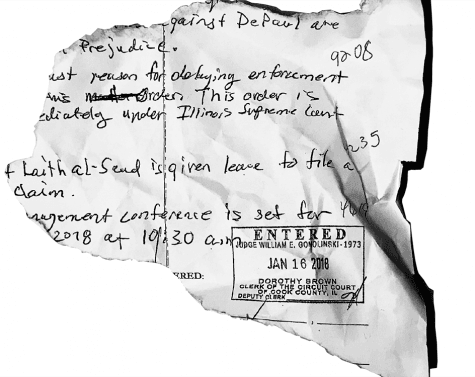 gainst DePaul are
Prejudice.
9208
ust reason for delaying enforcement
order. This order is
ediately under Illinois Supreme Court
235
t Laith al-Saud is given leave to file a
claim.
nagement conference is set for
2018 at 10:30 a.m.
ENTERED
JUDGE WILLIAM E. GOMOLINSKI-1973
JAN 16 2018
DOROTHY BROWN
CLERK OF THE CIRCUIT COURT
OF COOK COUNTY, IL
DEPUTY CLERK
ERED: